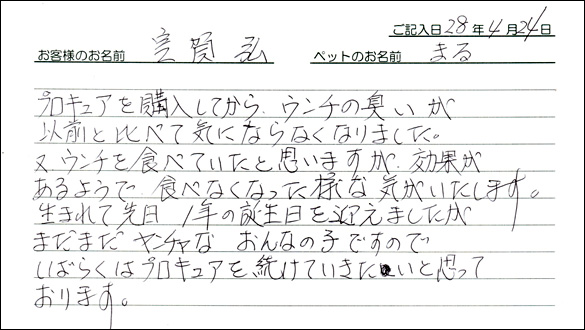 ご記入日 28年4月24日
お客様のお名前 室賀 弘 ペットのお名前 まる
プロキュアを購入してから、ウンチの臭いが
以前と比べて気にならなくなりました。
又、ウンチを食べていたと思いますが、効果が
あるようで、食べなくなった様な気がいたします。
生まれて先日、1年の誕生日を迎えましたが
まだまだヤンチャな おんなの子ですので
しばらくはプロキュアを続けていきたいと思って
おります。